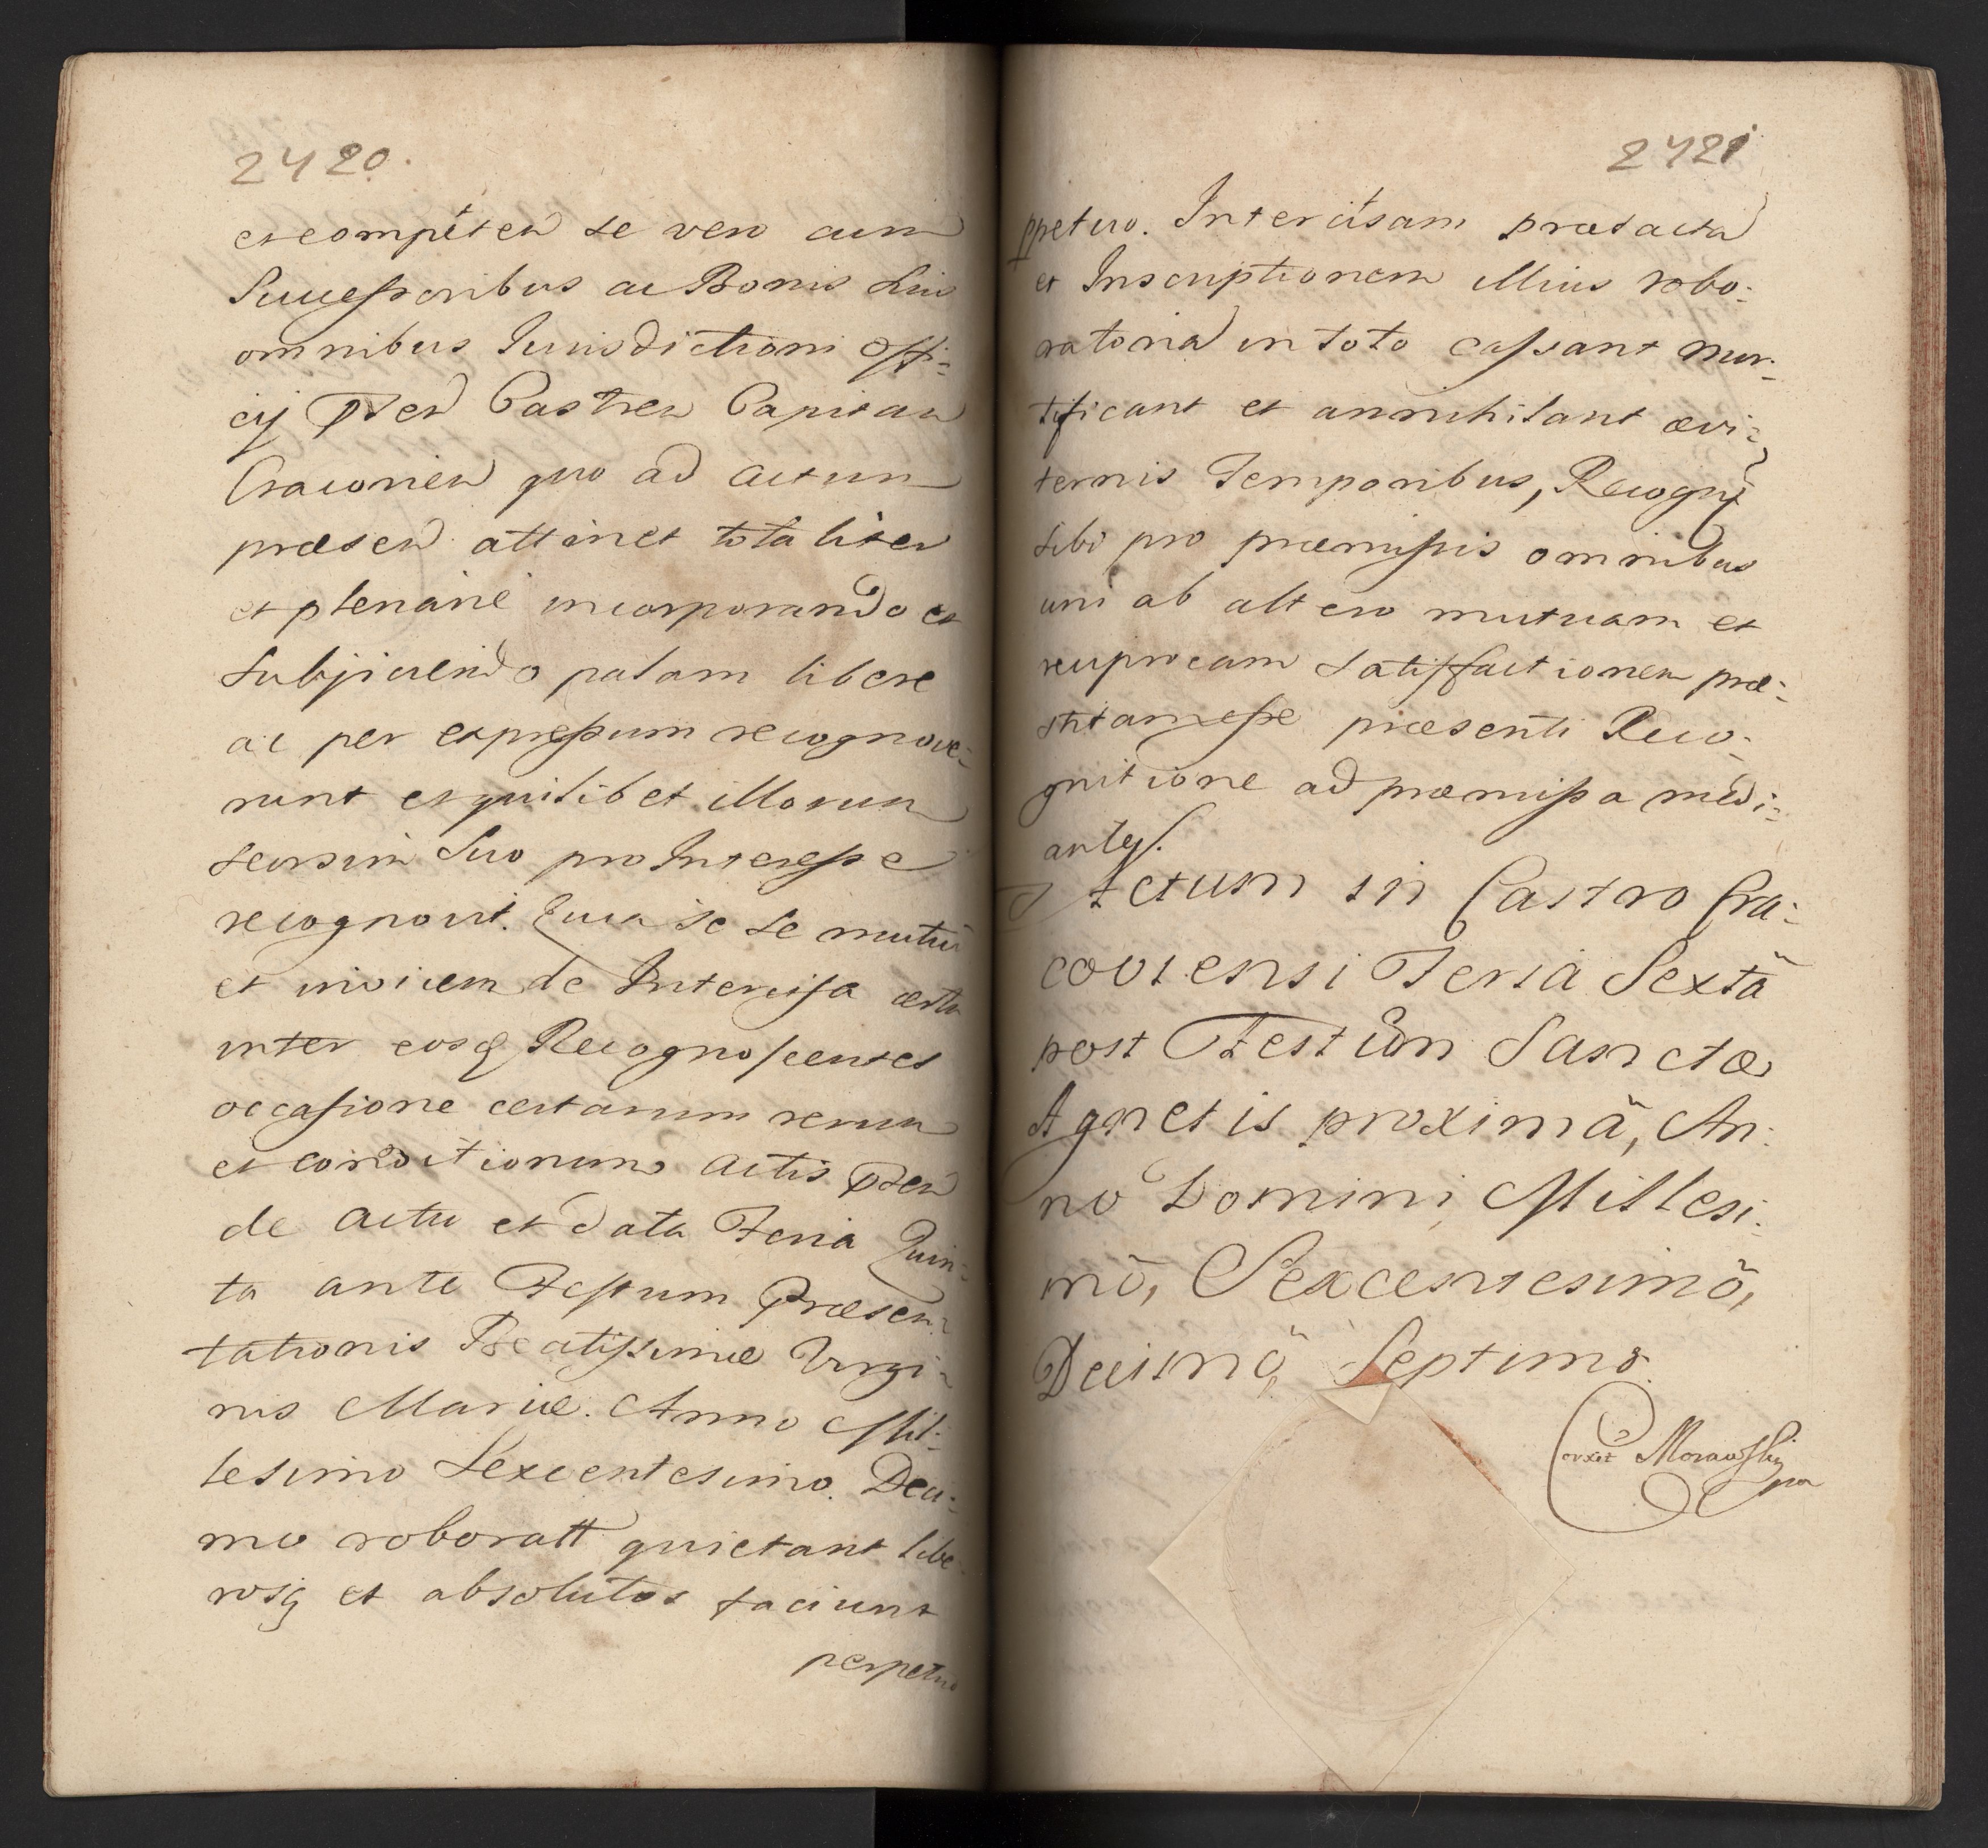 2420.
et compěten se vero cum
Successoribus ac Bonis suis
omnibus Jurisdictioni Offi-
cij Psen Castren Capitan
Cracovien quo ad actum
præsen attinet totaliter
et plenarie incorporando et
subjiciendo palam libere
ac per expressum recognove-
runt et quilibet illorum
seorsim suo pro Interesse
recognovit. Quia se se mutuo
et invicem de Intercisa certa
inter eosq Recognoscentes
occasione certarum rerum
et conditionum actis Psen
de actu et data Feria Quin-
ta ante Festum Præsen-
tationis Beatissimæ Virgi-
nis Mariæ. Anno Mil-
lesimo Sexcentesimo. Deci-
mo roboratt quietant libe
rosq et absolutos faciunt
perpetuo
2421
ppetuo. Intercisam prætacta
et Inscriptionem illius robo-
ratoria in toto cassant mor-
tificant et annihilant ævi-
ternis Temporibus, Recogn
sibi pro præmissis omnibus
uni ab altero mutuam et
reciprocam satisfactionem præ-
stitam esse præsenti Reco-
gnitione ad præmissa medi-
ante.
Actum in Castro Cra-
coviensi Feria Sextâ
post Festum Sanctæ
Agnetis proximâ, An-
no Domini Millesi-
mô, Sexcentesimô,
Decimô, Septimo.
Corxit Morawski
mp